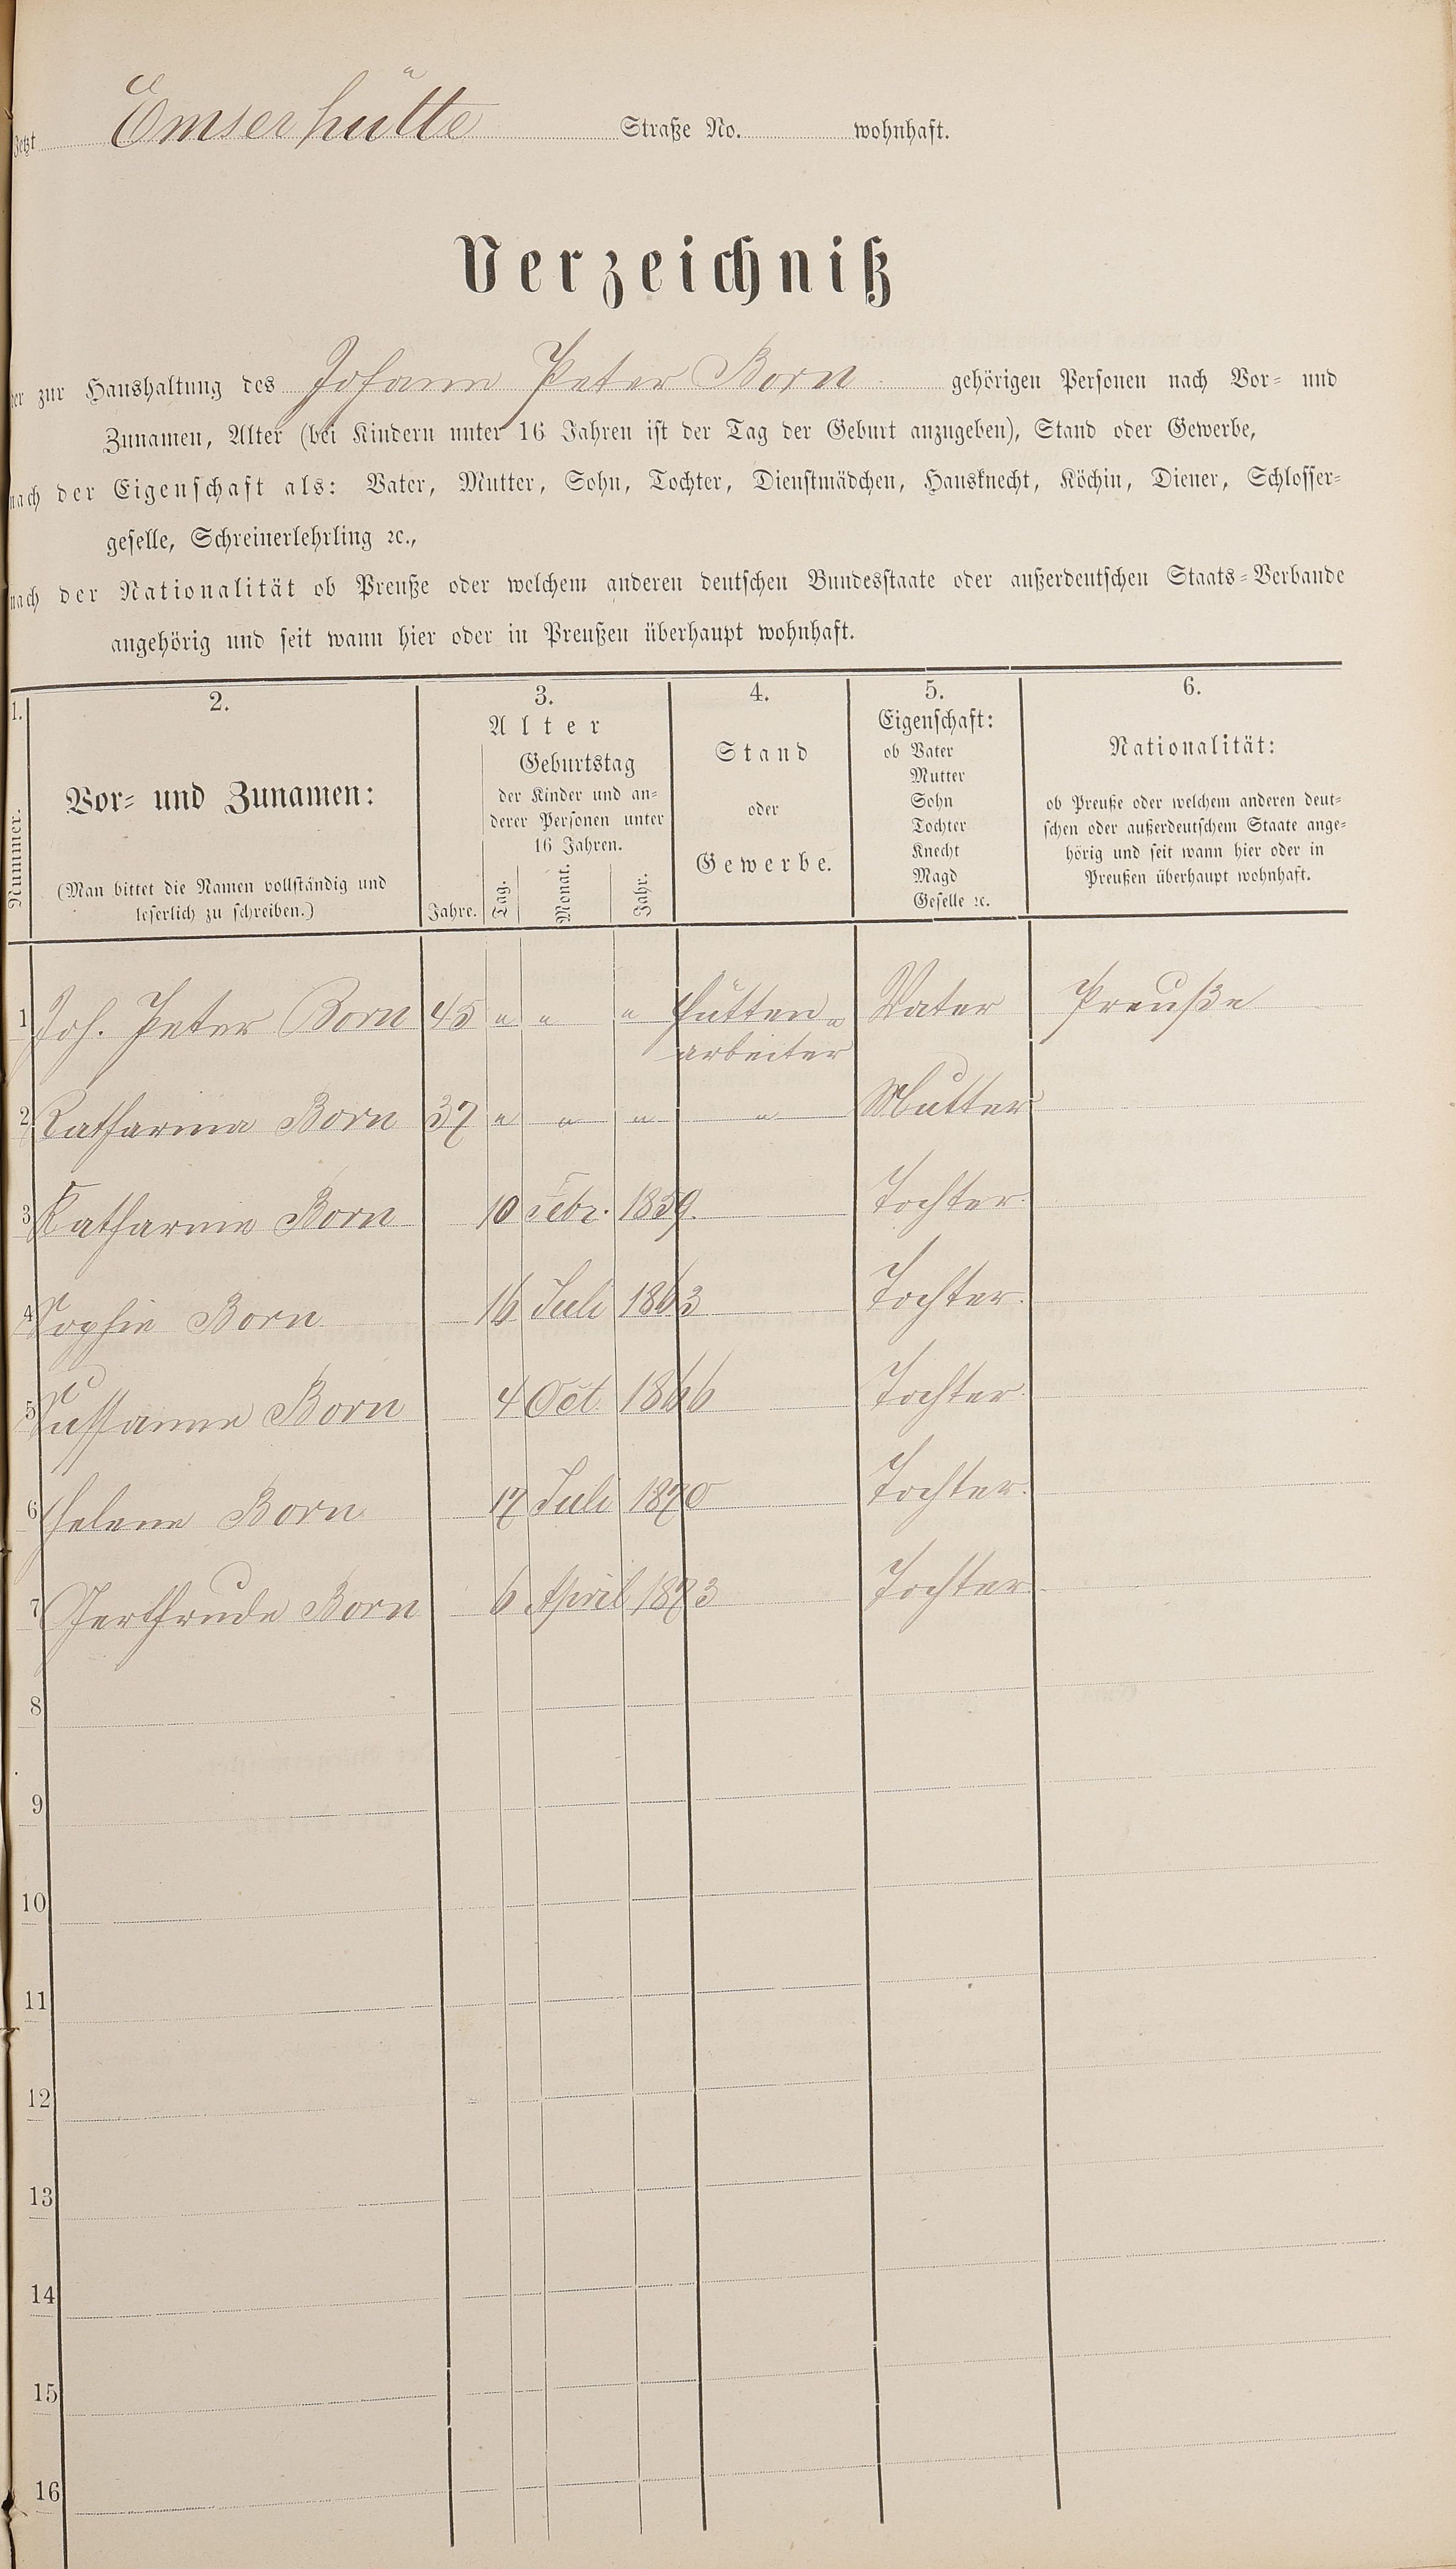 Jetzt Emserhütte Straße No. wohnhaft.
Verzeichniß
der zur Haushaltung des Johann Peter Born gehörigen Personen nach Vor- und
Zunamen, Alter (bei Kindern unter 16 Jahren ist der Tag der Geburt anzugeben), Stand oder Gewerbe,
nach der Eigenschaft als: Vater, Mutter, Sohn, Tochter, Dienstmädchen, Hausknecht, Köchin, Diener, Schlosser-
geselle, Schreinerlehrling ꝛc.,
nach der Nationalität ob Preuße oder welchem anderen deutschen Bundesstaate oder außerdeutschen Staats-Verbande
angehörig und seit wann hier oder in Preußen überhaupt wohnhaft.
1.
Nummer.
2.
Vor- und Zunamen:
(Man bittet die Namen vollständig und
leserlich zu schreiben.)
3.
Alter
Geburtstag
der Kinder und an-
derer Personen unter
16 Jahren.
Jahre. Tag. Monat. Jahr.
4.
Stand
oder
Gewerbe.
5.
Eigenschaft:
ob Vater
Mutter
Sohn
Tochter
Knecht
Magd
Geselle ꝛc.
6.
Nationalität:
ob Preuße oder welchem anderen deut-
schen oder außerdeutschem Staate ange-
hörig und seit wann hier oder in
Preußen überhaupt wohnhaft.
1 Joh. Peter Born 45 " " " Hütten- Vater Preuße
arbeiter
2 Katharina Born 37 " " " " Mutter
3 Katharine Born 10 Febr. 1859. Tochter.
4 Sophie Born 16 Juli 1863 Tochter.
5 Sussanne Born 4 Oct. 1866 Tochter.
6 Helene Born 17 Juli 1870 Tochter.
7 Gerthrude Born 6 April 1873 Tochter.
8
9
10
11
12
13
14
15
16